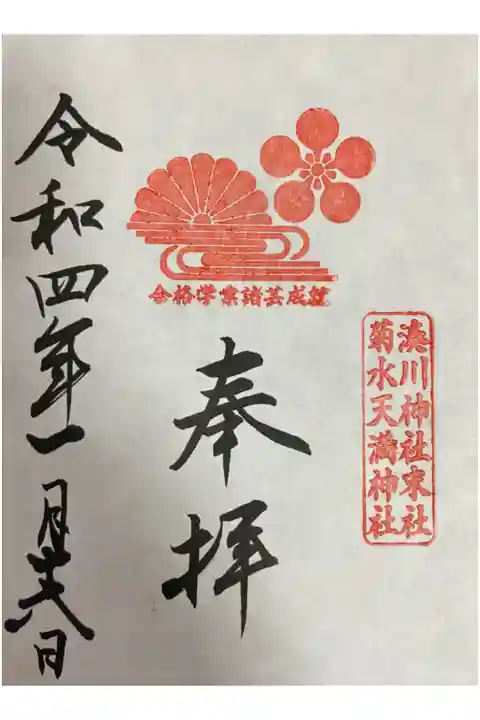 合格学業諸芸成就
湊川神社末社
菊水天満神社
奉拝
令和四年一月廿八日